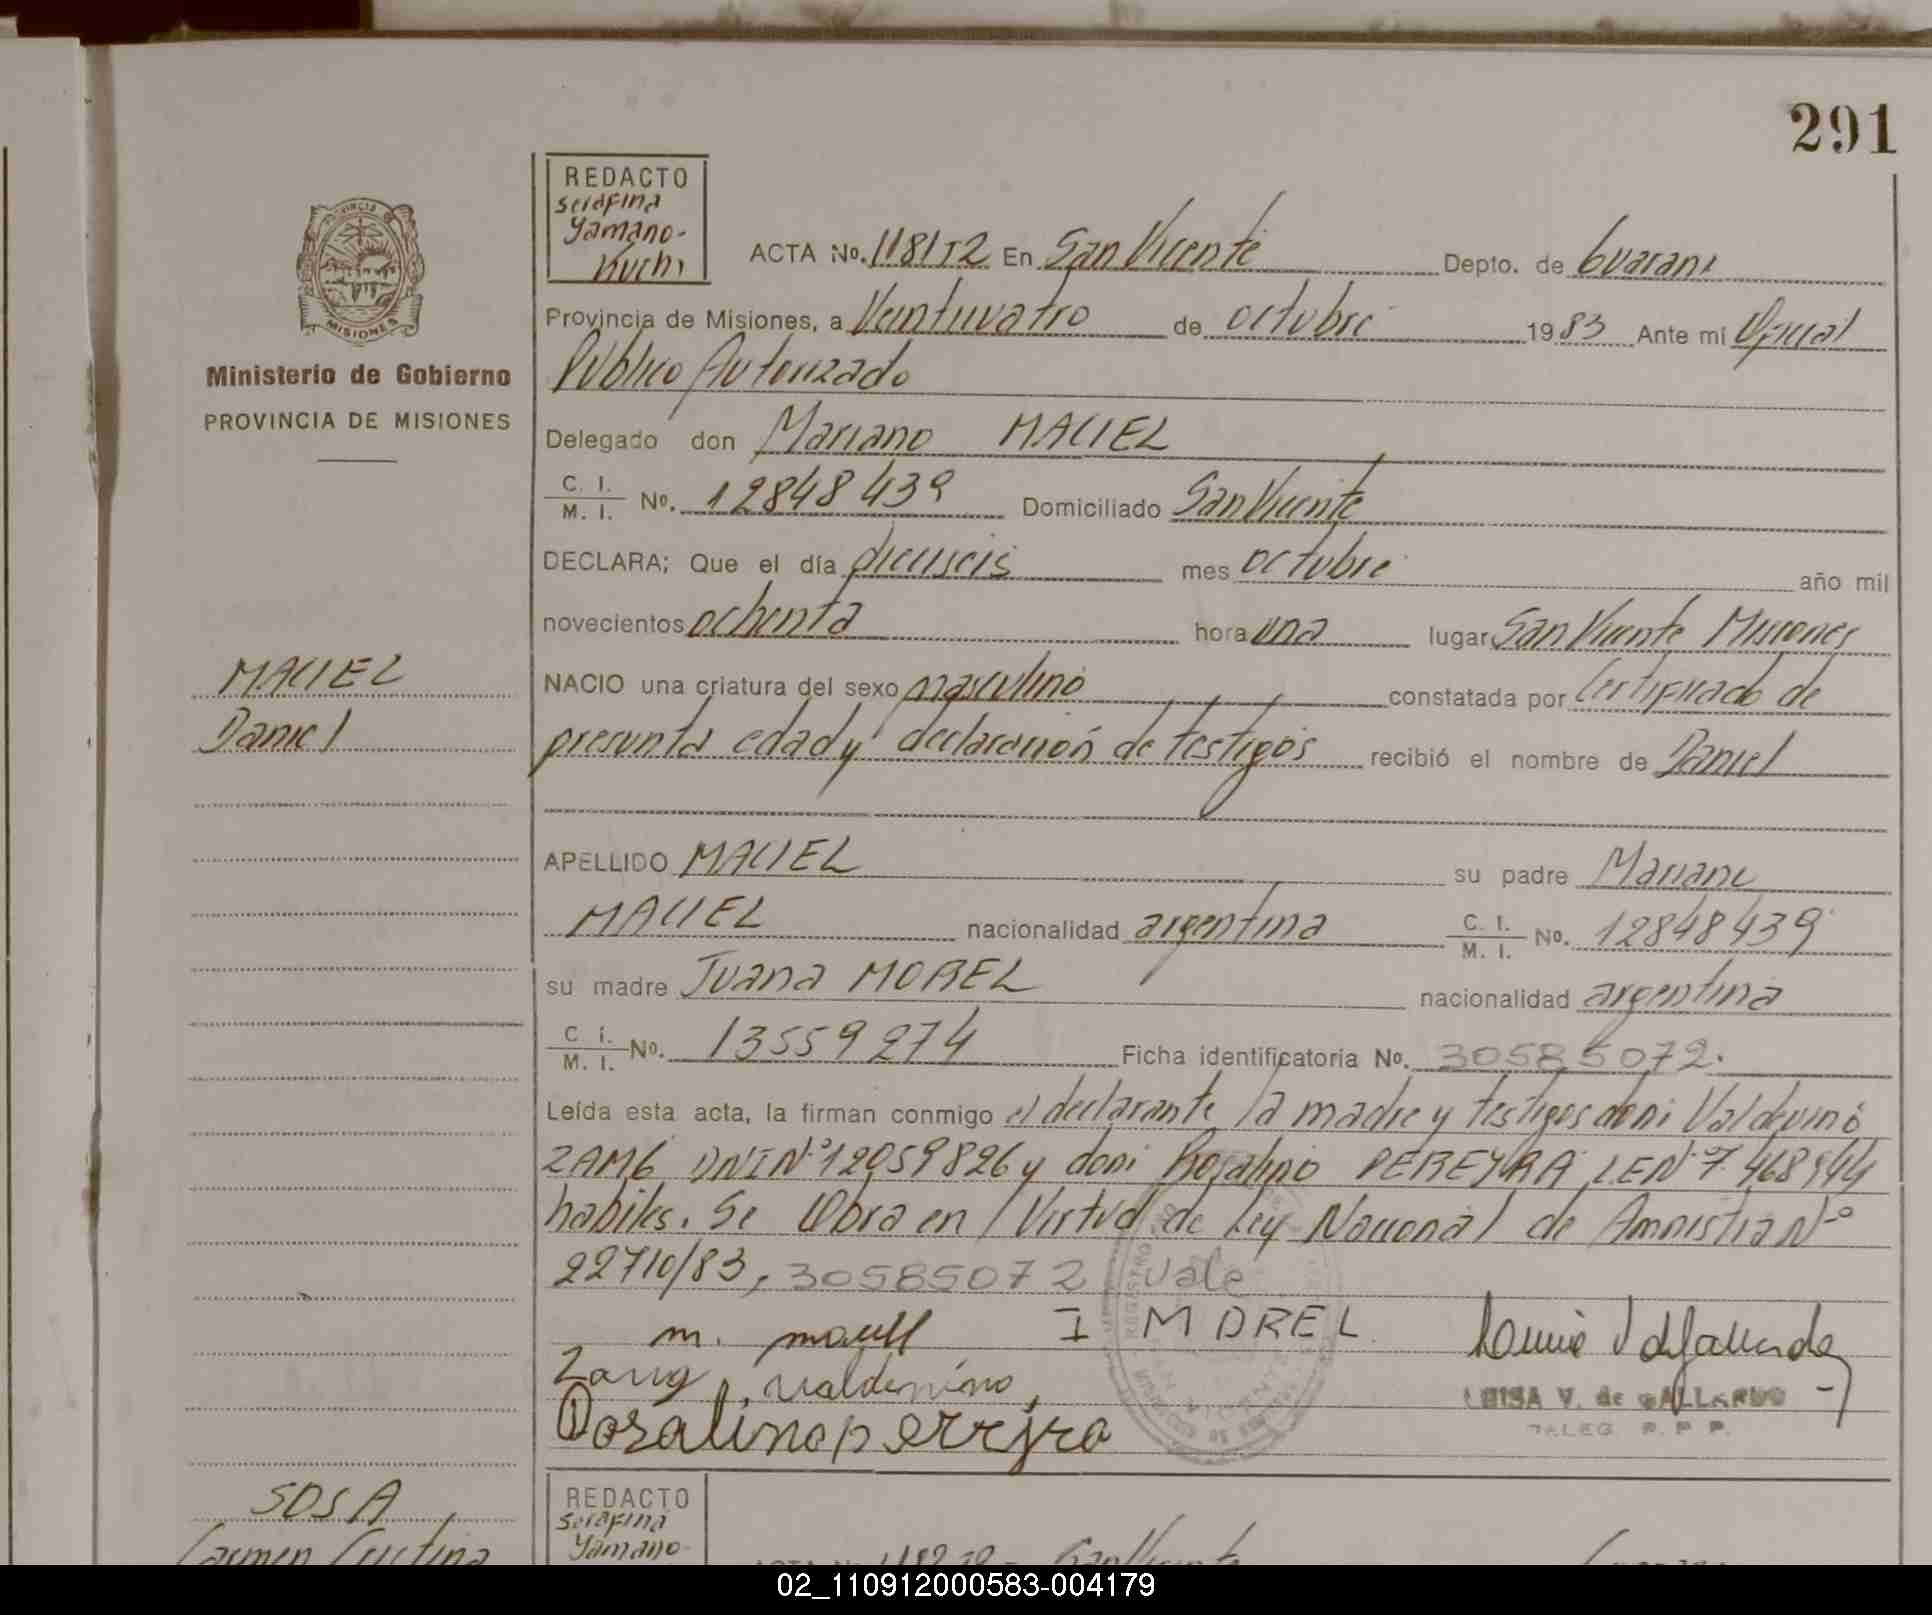 291
REDACTO
Serafina
Yamano-
Kuchi
ACTA No. 1181T2 En San Vicente Depto. de Guarani
Provincia de Misiones, a Veinticuatro de octubre 1983 Ante mi Oficial
Público Autorizado
Delegado don Mariano MACIEL
C. I.
M. I. No. 12848439 Domiciliado San Vicente
DECLARA; Que el día dieciseis mes octubre año mil
novecientos ochenta hora una lugar San Vicente Misiones
NACIO una criatura del sexo masculino constatada por Certificado de
presunta edad y declaración de testigos recibió el nombre de Daniel
APELLIDO MACIEL su padre Mariano
MACIEL nacionalidad argentina C. I.
M. I. No. 12848439
su madre Juana MOREL nacionalidad argentina
C. I.
M. I. No. 13559274 Ficha identificatoria No. 30585072.
Leída esta acta, la firman conmigo el declarante la madre y testigos don: Valdevino
ZAMG DNI Nº 12059826 y don: Rosalino PEREYRA L.E Nº 7.468944
habiles. Se labra en Virtud de Ley Nacional de Amnistia Nº
22710/83, 30585072 Vale
m. maciel I MOREL
Zang Valdevino
Rosalino perrejra
LUISA V. de GALLARDO
DELEG R. P. P.
PROVINCIA DE
MISIONES
Ministerio de Gobierno
PROVINCIA DE MISIONES
MACIEL
Daniel
SOSA
Carmen Cristina
REDACTO
Serafina
Yamano-
ACTA No. San Vicente
02_110912000583-004179